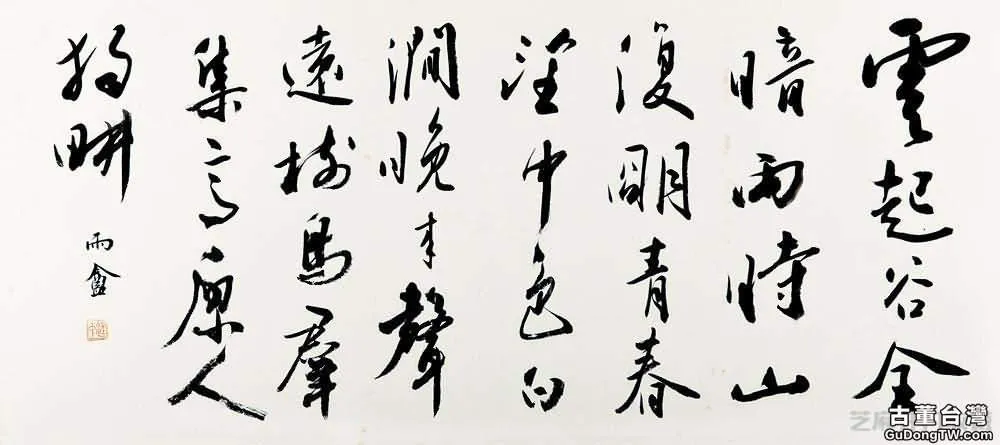 雲起谷全
暗雨時山
復明青春
望中色白
澗晚来聲
遠樹鳥羣
集高原人
獨耕
雨鑫
古董台灣
GuDongTW.com